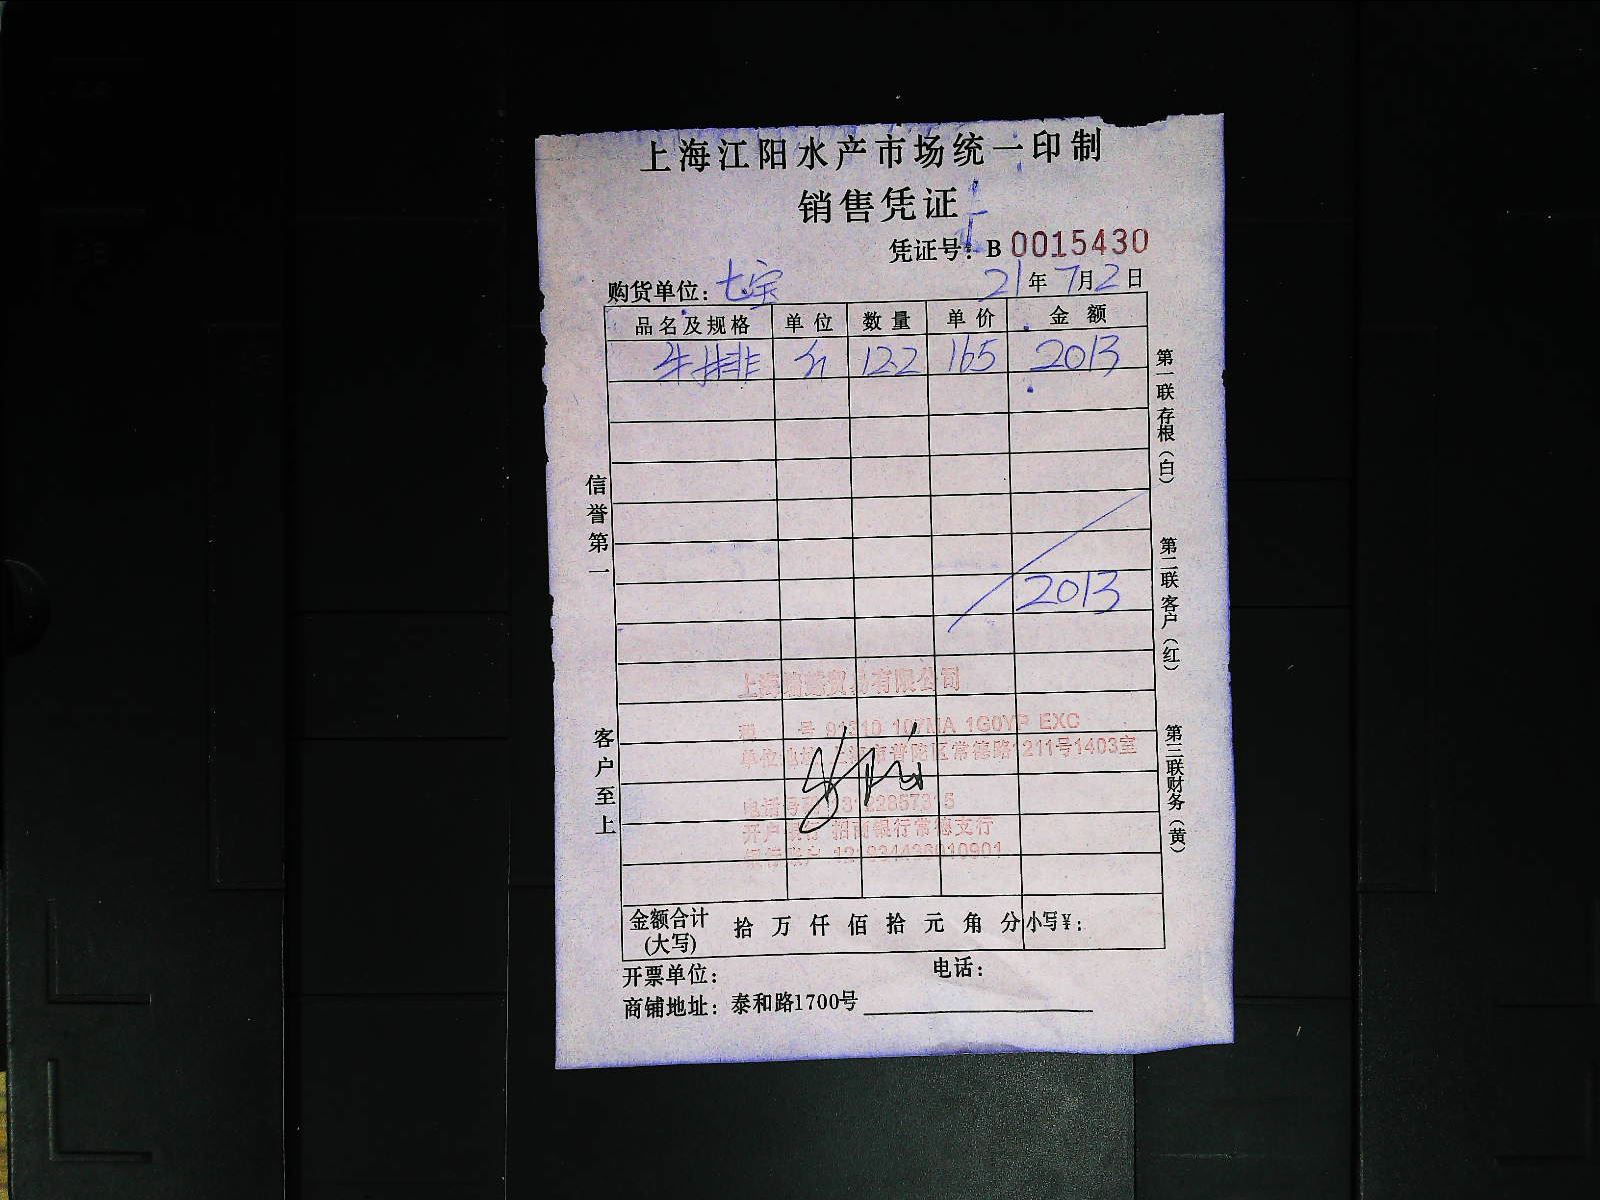 上海江阳水产市场统一印制
销售凭证
凭证号：B 0015430
购货单位：七宝 21年7月2日
品名及规格 单位 数量 单价 金额
牛排 斤 12.2 165 2013
2013
上海 贸易有限公司
税 号 91310 107MA 1G0YP EXC
单位地址 上海市普陀区常德路1211号1403室
电话号码
开户银行 招商银行常德支行
银行账户
金额合计(大写) 拾 万 仟 佰 拾 元 角 分 小写¥：
开票单位： 电话：
商铺地址：泰和路1700号
信誉第一
客户至上
第一联存根（白）
第二联客户（红）
第三联财务（黄）